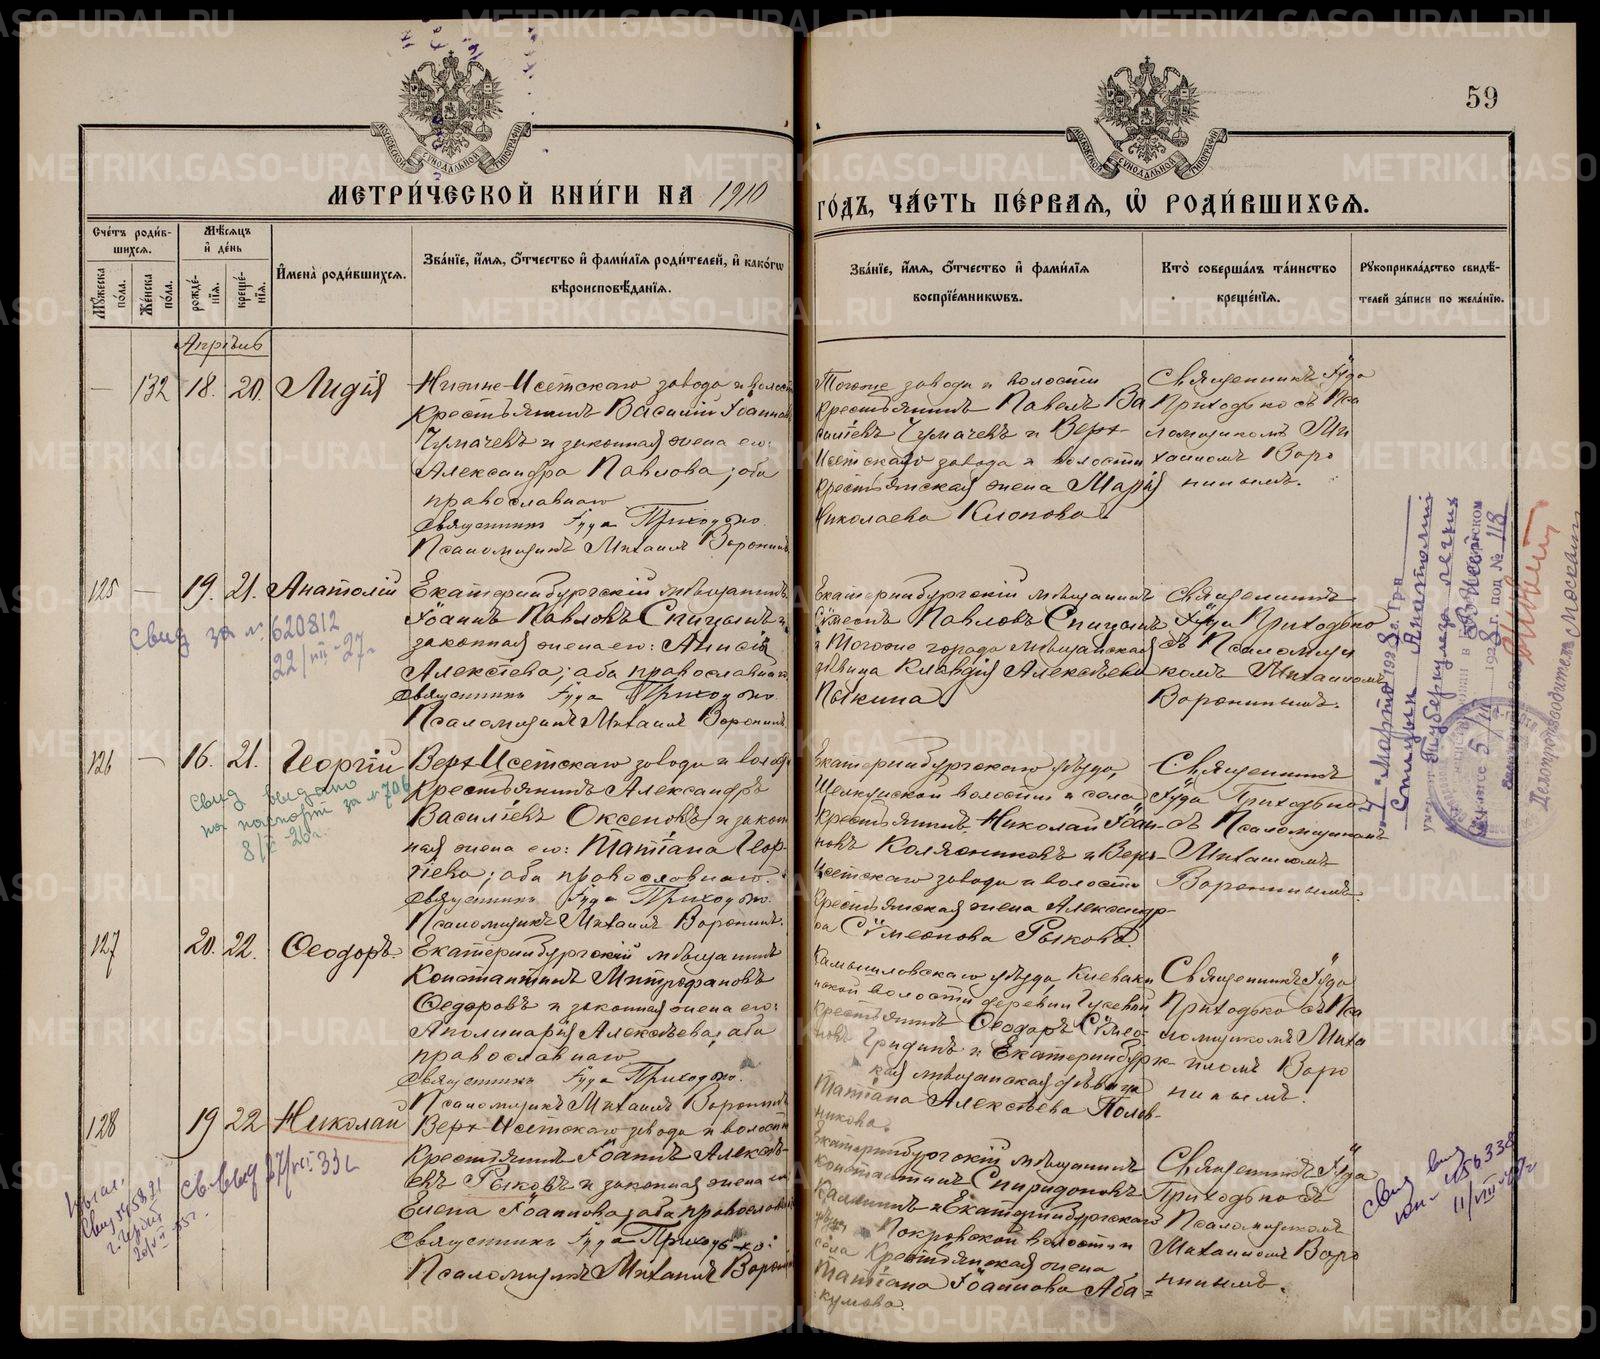 59
МЕТРИ́ЧЕСКОЙ КНИ́ГИ НА 1910
ГО́ДЪ, ЧА́СТЬ ПЕ́РВАѦ, Ѿ РОДИ́ВШИХСѦ.
Сче́тъ роди́в-
шихсѧ.
Мѣ́сѧцъ
и҆ де́нь
Мꙋ́жеска по́ла.
Же́нска по́ла.
рожде́-
нїѧ.
креще́-
нїѧ.
И҆мена̀ роди́вшихсѧ.
Зва́нїе, и҆́мѧ, ѻ҆́тчество и҆ фами́лїѧ роди́телей, и҆ како́гѡ
вѣроисповѣ́данїѧ.
Зва́нїе, и҆́мѧ, ѻ҆́тчество и҆ фами́лїѧ
воспрїе́мникѡвъ.
Кто̀ соверша́лъ та́инство
креще́нїѧ.
Рꙋкоприкла́дство свидѣ́-
телей за́писи по жела́нїю.
Апрѣль
— 132 18. 20. Лидія
Нижне-Исетскаго завода и волости
крестьянинъ Василій Іоанновъ
Чумачевъ и законная жена его:
Александра Павлова; оба
православнаго
Священникъ Іуда Приходько.
Псаломщикъ Михаилъ Воронинъ
Тогоже завода и волости
крестьянинъ Павелъ Ва
силіевъ Чумачевъ и Верх-
Исетскаго завода и волости
крестьянская жена Марія
Николаева Клопова.
Священникъ Іуда
Приходько съ Пса
ломщикомъ Ми
хаиломъ Воро
нинымъ.
125 — 19. 21. Анатолій
Свид за № 620812
22/VIII-27г
Екатеринбургскій мѣщанинъ
Іоаннъ Павловъ Спицынъ и
законная жена его: Анисія
Алексѣева; оба православнаго
Священникъ Іуда Приходько.
Псаломщикъ Михаилъ Воронинъ
Екатеринбургскій мѣщанинъ
Сѵмеонъ Павловъ Спицынъ
и Тогоже города мѣщанская
дѣвица Клавдія Алексѣева
Пыкина.
Священникъ
Іуда Приходько
съ Псаломщи
комъ Михаиломъ
Воронинымъ.
126 — 16. 21. Георгій
Свид выдано
на паспорт за № 706
Верх Исетскаго завода и волости
крестьянинъ Александръ
Василіевъ Оксеновъ и закон
ная жена его: Татіана Геор-
гіева; оба православнаго.
Священникъ Іуда Приходько.
Псаломщикъ Михаилъ Воронинъ.
Екатеринбургскаго уѣзда,
Щелкунской волости и села
крестьянинъ Николай Іоан-
новъ Колясниковъ и Верх-
Исетскаго завода и волости
крестьянская жена Александр-
ра Сѵмеонова Рыкова.
Священникъ
Іуда Приходько
съ Псаломщикомъ
Михаиломъ
Воронинымъ.
127 20. 22. Ѳеодоръ.
Екатеринбургскій мѣщанинъ
Константинъ Митрофановъ
Ѳедоровъ и законная жена его:
Аполинарія Алексѣева; оба
православнаго
Священникъ Іуда Приходько.
Псаломщикъ Михаилъ Воронинъ
Камышловскаго уѣзда,
волости деревни
крестьянинъ Ѳеодоръ Сѵмео-
новъ Гридинъ и Екатеринбург-
кая мѣщанская дѣвица
Татіана Алексѣева Полов-
никова.
Священникъ Іуда
Приходько съ Пса
ломщикомъ Миха
иломъ Воро
нинымъ.
128 19 22 Николай
Верх-Исетскаго завода и волости
крестьянинъ Іоаннъ Алексѣ-
евъ Рыковъ и законная жена его
Елена Іоаннова; оба православнаго
Священникъ Іуда Приходько
Псаломщикъ Михаилъ Воронинъ
Екатеринбургскій мѣщанинъ
Константинъ Спиридоновъ
Калининъ и Екатеринбургскаго
уѣзда Покровской волости и
села крестьянская жена
Татіана Іоаннова Аба=
кумова.
Священникъ Іуда
Приходько съ
Псаломщикомъ
Михаиломъ Воро
нинымъ.
Спицын Анатолий
туберкулеза легких
№ 118
Делопроизводитель
METRIKI.GASO-URAL.RU